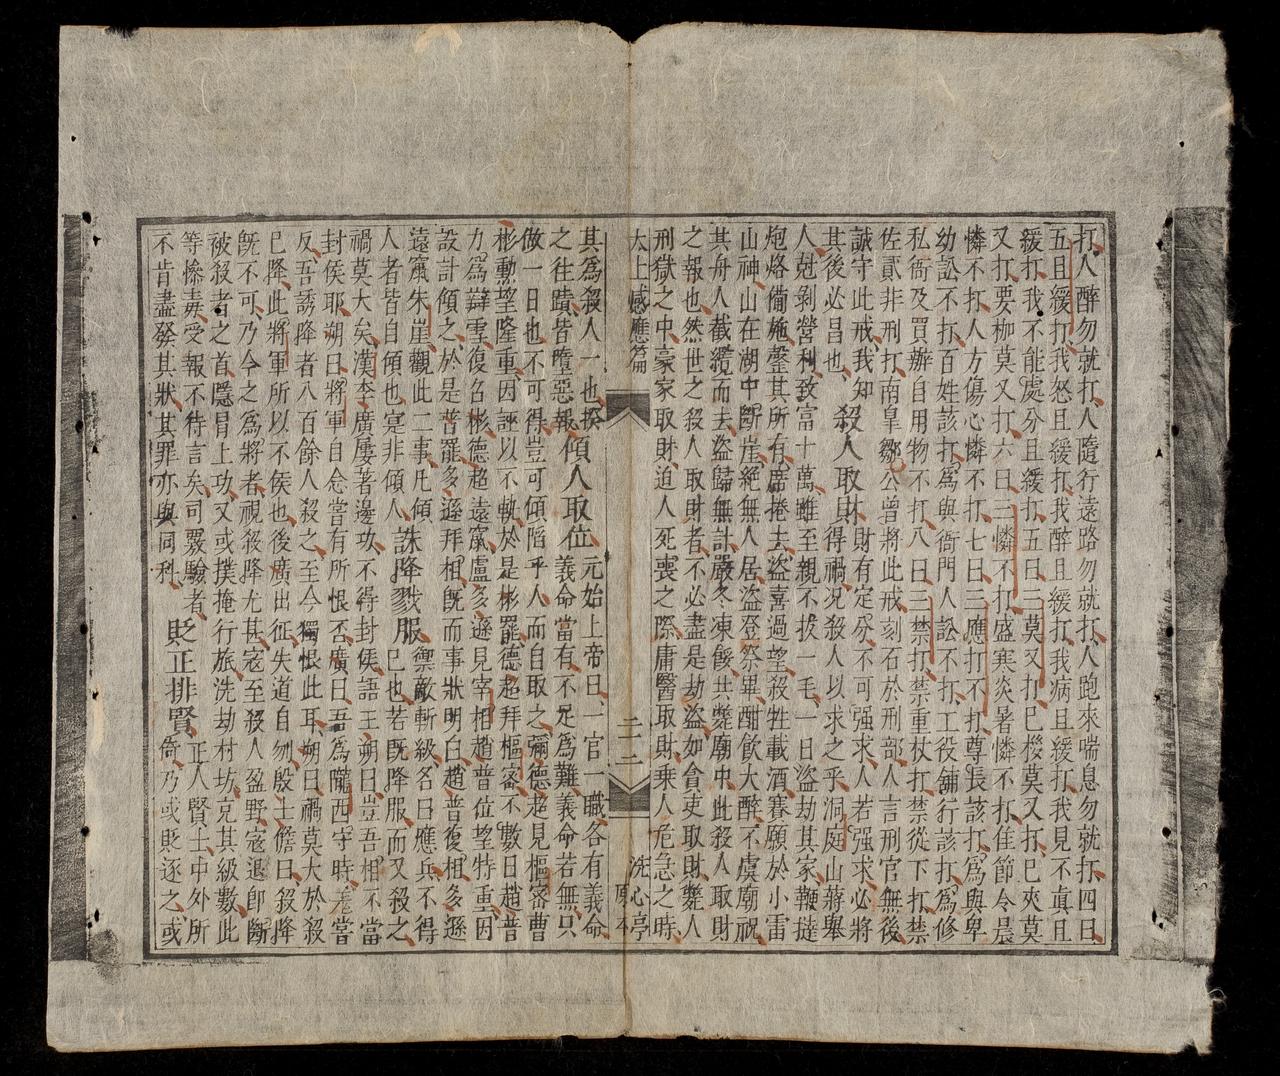 打人醉勿就打人隨行遠路勿就打人跑來喘息勿就打四曰
五且緩打我怒且緩打我醉且緩打我病且緩打我見不真且
緩打我不能處分且緩打五曰三莫又打已拶莫又打已夾莫
又打要枷莫又打六曰三憐不打盛寒炎暑憐不打佳節令晨
憐不打人方傷心憐不打七曰三應打不打尊長該打為與卑
幼訟不打百姓該打為與衙門人訟不打工役舖行該打為修
私衙及買辦自用物不打八曰三禁打禁重杖打禁從下打禁
佐貳非刑打南皐鄒公曾將此戒刻石於刑部人言刑官無後
誠守此戒我知 殺人取財 財有定分不可强求人若强求必將
其後必昌也 得禍况殺人以求之乎洞庭山蔣舉
人尅剝營利致富十萬雖至親不拔一毛一日盜劫其家鞭撻
炮烙備施罄其所有席捲去盜喜過望殺牲載酒賽願於小雷
山神山在湖中斷崖絕無人居盜登祭畢酣飲大醉不虞廟祝
其舟人截纜而去盜歸無計嚴冬凍餒共斃廟中此殺人取財
之報也然世之殺人取財者不必盡是劫盜如貪吏取財斃人
刑獄之中豪家取財迫人死喪之際庸醫取財乘人危急之時
太上感應篇 二二 洗心亭原本
其為殺人一也揆 傾人取位 元始上帝曰一官一職各有義命
之往蹟皆墮惡報 義命當有不足為難義命若無只
做一日也不可得豈可傾陷乎人而自取之彌德超見樞密曹
彬勳望隆重因誣以不軌於是彬罷德超拜樞密不數日趙普
力為辯雪復召彬德超遠竄盧多遜見宰相趙普位望特重因
設計傾之於是普罷多遜拜相既而事狀明白趙普復相多遜
遠竄朱崖觀此二事凡傾 誅降戮服 禦敵斬級名曰應兵不得
人者皆自傾也寔非傾人 已也若既降服而又殺之
禍莫大矣漢李廣屢著邊功不得封侯語王朔曰豈吾相不當
封侯耶朔曰將軍自念嘗有所恨否廣曰吾為隴西守時羌嘗
反吾誘降者八百餘人殺之至今獨恨此耳朔曰禍莫大於殺
已降此將軍所以不侯也後廣出征失道自刎殷士儋曰殺降
既不可乃今之為將者視殺降尤甚寇至殺人盈野寇退卽斷
被殺者之首隱冒上功又或撲掩行旅洗劫村坊充其級數此
等慘毒受報不待言矣司覈驗者 貶正排賢 正人賢士中外所
不肯盡發其狀其罪亦與同科 倚乃或貶逐之或